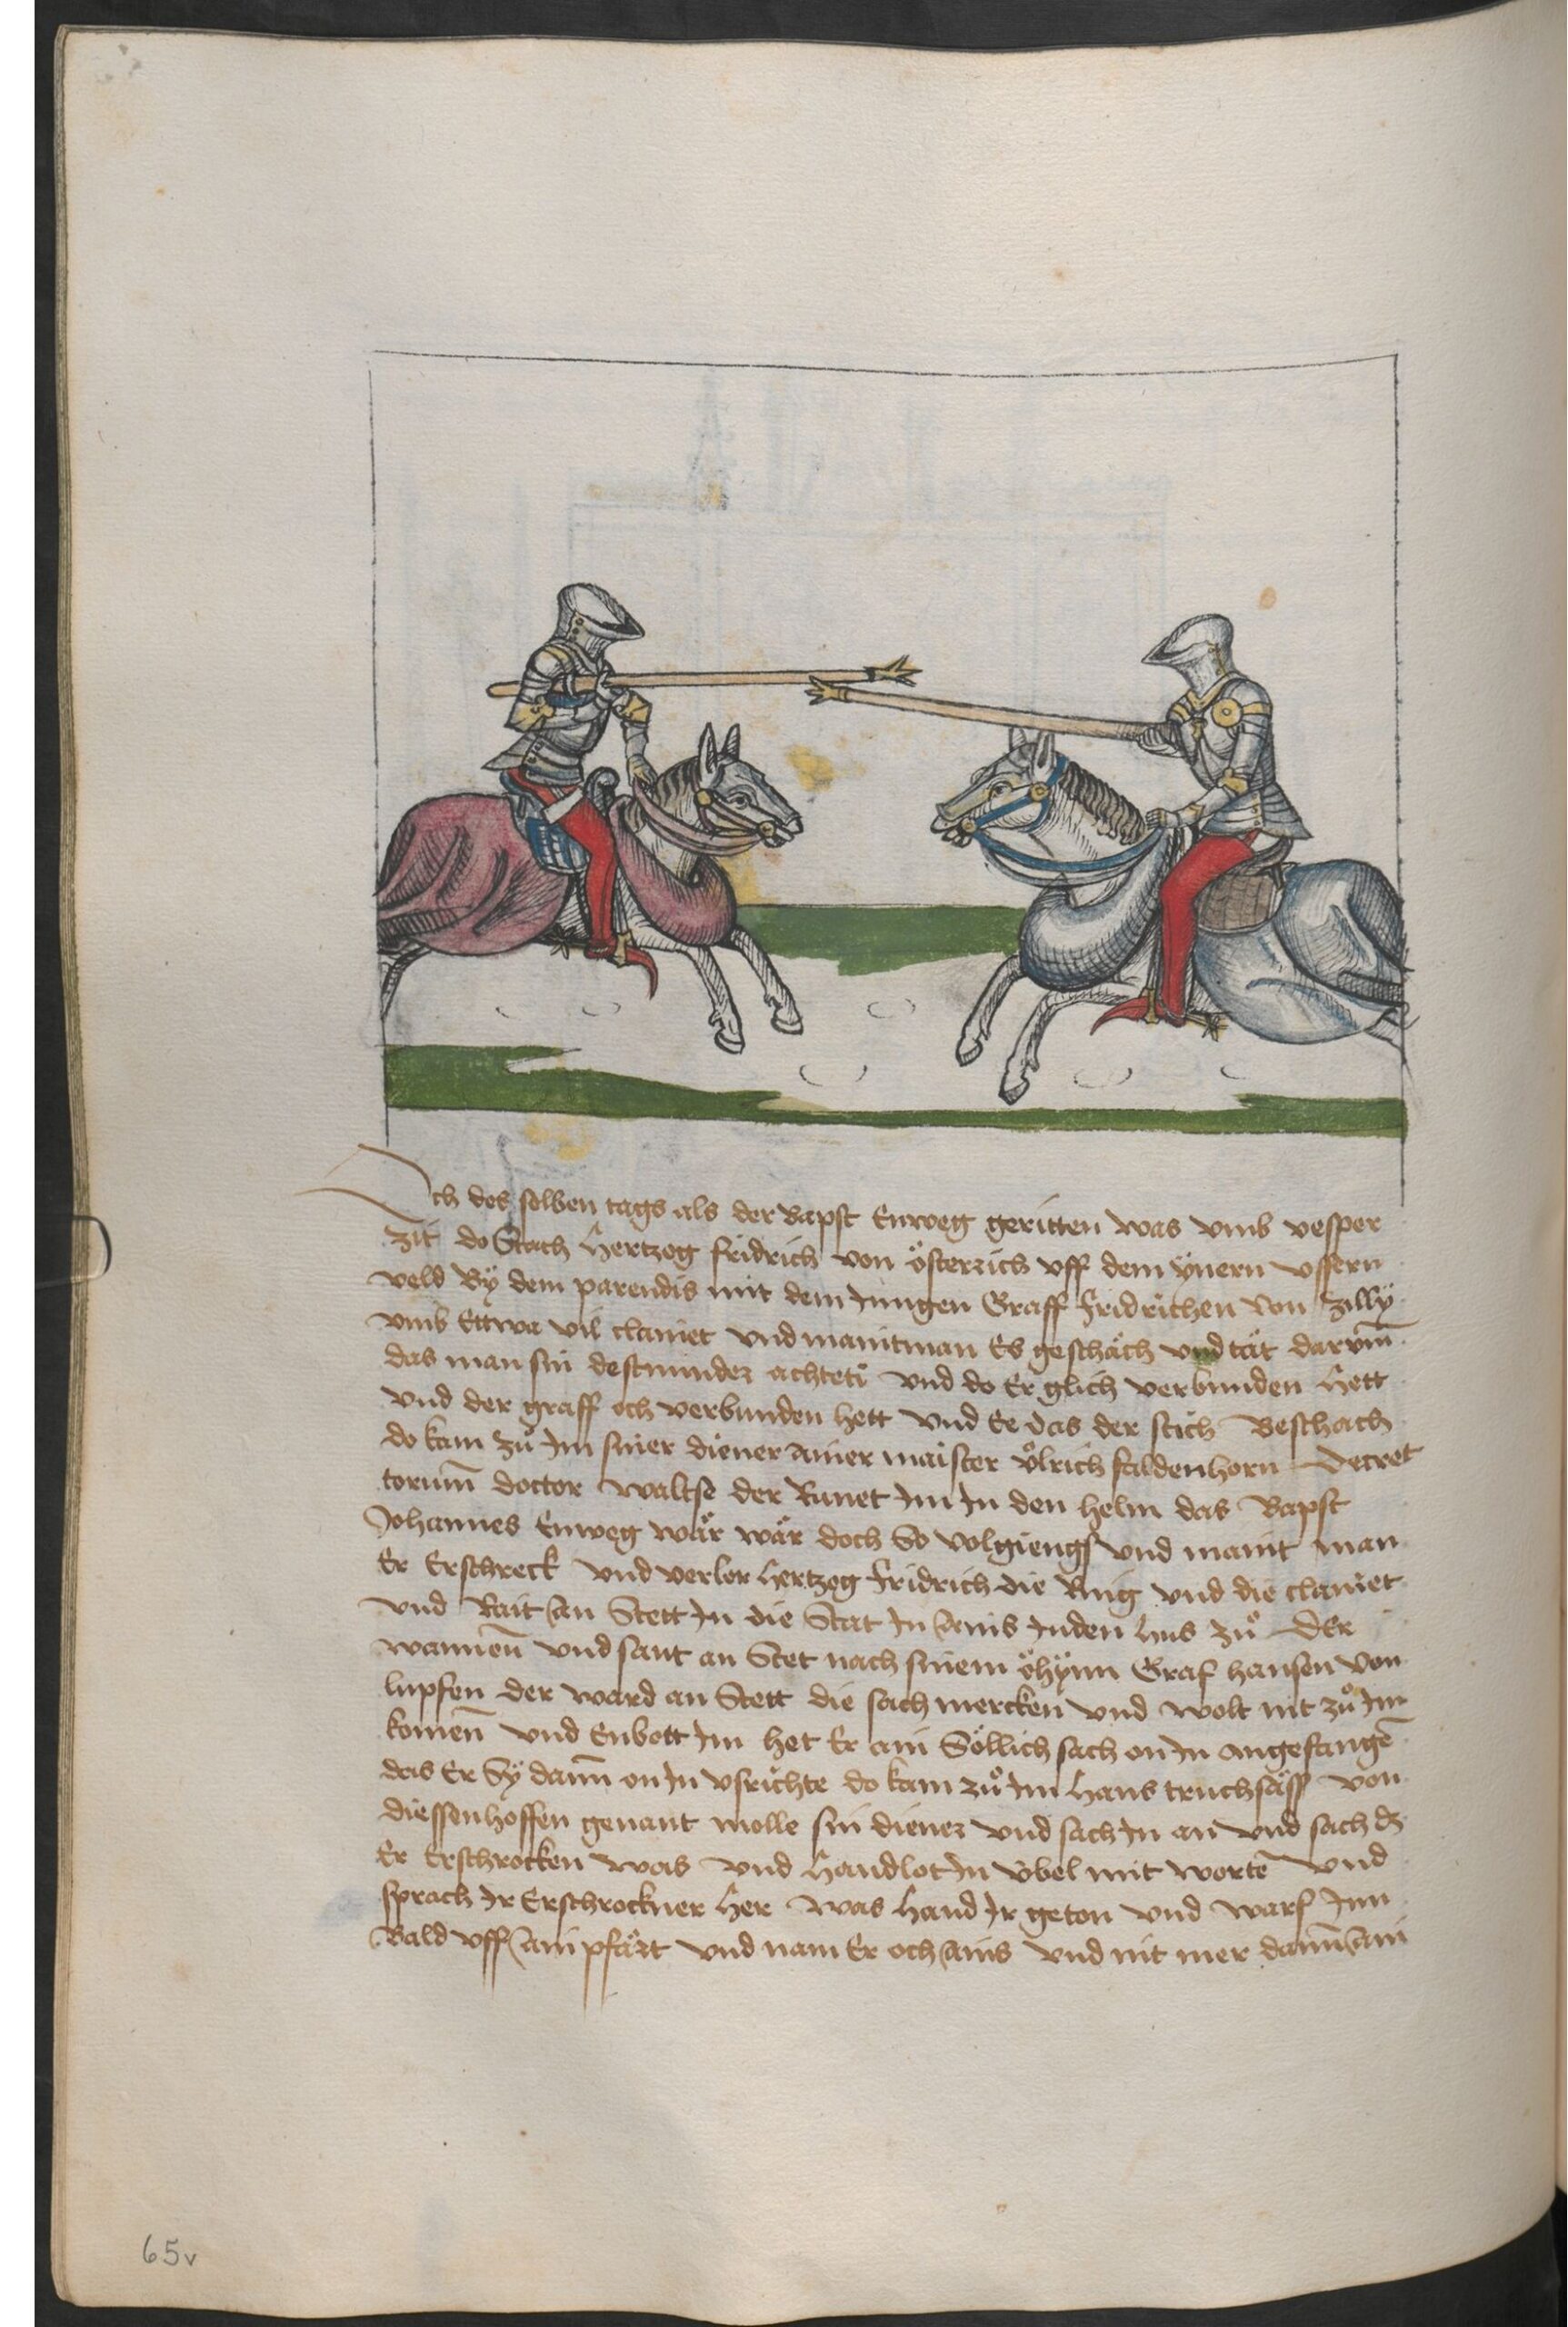 Och des selben tags als der Bapst Enweg geritten was vmb vesper
zit do Stach Hertzog fridrich von österrich vff dem ynern vssern
veld Bÿ dem parendis mit dem Jungen Graff Fridrichen von Zillÿ
vmb Ettwe vil claniet vnd maint man Es geschäch vnd tät darum̄
das man sin destminder achteti vnd do Er glich verbunden Hett
vnd der graff och verbunden hett vnd Ee das der stich Beschach
do kam zů Jm siner diener ainer maister Ůlrich faldenhorn Decret
torum̄ doctor waltse der Runet Jm Jn den helm das Bapst
Johannes Enweg wär wär doch So volgiengs vnd maint man
Er Erschreck vnd verlor Hertzog Fridrich die Ring vnd die claniet
vnd Rait an Stett Jn die Stat Jn ains Juden Hus zů DEr
wannen̄ vnd sant an Stet nach sinem öhÿnn Graf hansen von
lupfen der ward an Stett die sach mercken vnd wolt nit zů Jm
komen̄ vnd Enbott Jm het Er ain Söllich sach on Jn angefangē
das Er Sÿ dann̄ on Jn vsrichte do kam zů Jm Hans truchsäss von
diessenhoffen genant molle sin diener vnd sach Jn an vnd sach dz
Er Erschrocken was vnd Handlot Jn übel mit wortē vnd
sprach Jr Erschrockner Her was Hand Jr geton vnd warf Jnn
Bald vff ain pfärt vnd nam Er och ains vnd nit mer dann̄ ain
65v